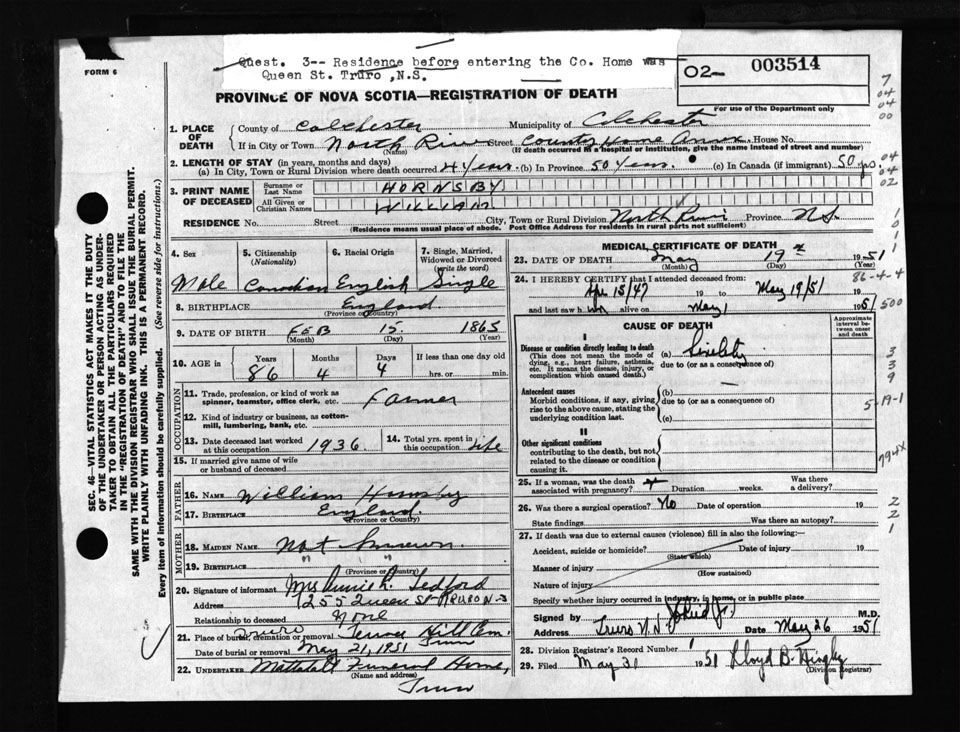 Quest. 3-- Residence before entering the Co. Home was
Queen St. Truro ,N.S.
FORM 6
O2- 003514
For use of the Department only
PROVINCE OF NOVA SCOTIA—REGISTRATION OF DEATH
1. PLACE OF DEATH
County of Colchester Municipality of Colchester
If in City or Town North River Street County Home Annex House No.
(Name) (If death occurred in a hospital or institution, give the name instead of street and number)
2. LENGTH OF STAY (in years, months and days)
(a) In City, Town or Rural Division where death occurred 4 Years. (b) In Province 50 Years. (c) In Canada (if immigrant) 50 yrs.
3. PRINT NAME OF DECEASED
Surname or Last Name HORNSBY
All Given or Christian Names WILLIAM
RESIDENCE No. Street City, Town or Rural Division North River Province N.S.
(Residence means usual place of abode. Post Office Address for residents in rural parts not sufficient)
4. Sex
Male
5. Citizenship (Nationality)
Canadian
6. Racial Origin
English
7. Single, Married, Widowed or Divorced (write the word)
Single
8. BIRTHPLACE England
(Province or Country)
9. DATE OF BIRTH FEB 15. 1865
(Month) (Day) (Year)
10. AGE in Years Months Days If less than one day old
86 4 4 hrs. or min.
OCCUPATION
11. Trade, profession, or kind of work as spinner, teamster, office clerk, etc. Farmer
12. Kind of industry or business, as cotton-mill, lumbering, bank, etc.
13. Date deceased last worked at this occupation 1936
14. Total yrs. spent in this occupation Life
15. If married give name of wife or husband of deceased
FATHER
16. NAME William Hornsby
17. BIRTHPLACE England
(Province or Country)
MOTHER
18. MAIDEN NAME Not known
19. BIRTHPLACE " "
(Province or Country)
20. Signature of informant Mrs Annie L. Ledford
Address 255 Queen St TRURO N-S
Relationship to deceased None
21. Place of burial, cremation or removal Truro Terrace Hill Cem. Truro
Date of burial or removal May 21, 1951
22. UNDERTAKER Mattatall Funeral Home,
(Name and address)
Truro
MEDICAL CERTIFICATE OF DEATH
23. DATE OF DEATH May 19th 1951
(Month) (Day)
24. I HEREBY CERTIFY that I attended deceased from:
Apr 15/47 19 to May 19/51 19
and last saw him alive on May 1 1951
CAUSE OF DEATH
Approximate interval between onset and death
I
Disease or condition directly leading to death
(This does not mean the mode of dying, e.g., heart failure, asthenia, etc. It means the disease, injury, or complication which caused death.)
(a) Senility
due to (or as a consequence of)
Antecedent causes
Morbid conditions, if any, giving rise to the above cause, stating the underlying condition last.
(b)
due to (or as a consequence of)
(c)
II
Other significant conditions
contributing to the death, but not related to the disease or condition causing it.
25. If a woman, was the death associated with pregnancy? Duration weeks. Was there a delivery?
26. Was there a surgical operation? No Date of operation 19
State findings Was there an autopsy?
27. If death was due to external causes (violence) fill in also the following:—
Accident, suicide or homicide? Date of injury 19
(State which)
Manner of injury
(How sustained)
Nature of injury
Specify whether injury occurred in industry, in home, or in public place
Signed by M.D.
Address Truro N.S. Date May 26 1951
28. Division Registrar's Record Number
29. Filed May 31 1951 Lloyd B. Higby
(Division Registrar)
SEC. 46—VITAL STATISTICS ACT MAKES IT THE DUTY
OF THE UNDERTAKER OR PERSON ACTING AS UNDER-
TAKER TO OBTAIN ALL THE PARTICULARS REQUIRED
IN THE "REGISTRATION OF DEATH" AND TO FILE THE
SAME WITH THE DIVISION REGISTRAR WHO SHALL ISSUE THE BURIAL PERMIT.
WRITE PLAINLY WITH UNFADING INK. THIS IS A PERMANENT RECORD.
Every item of information should be carefully supplied. (See reverse side for instructions.)
7
04
04
00
04
04
02
1
0
1
1
86-4-4
500
3
3
9
5-19-1
794X
2
2
1